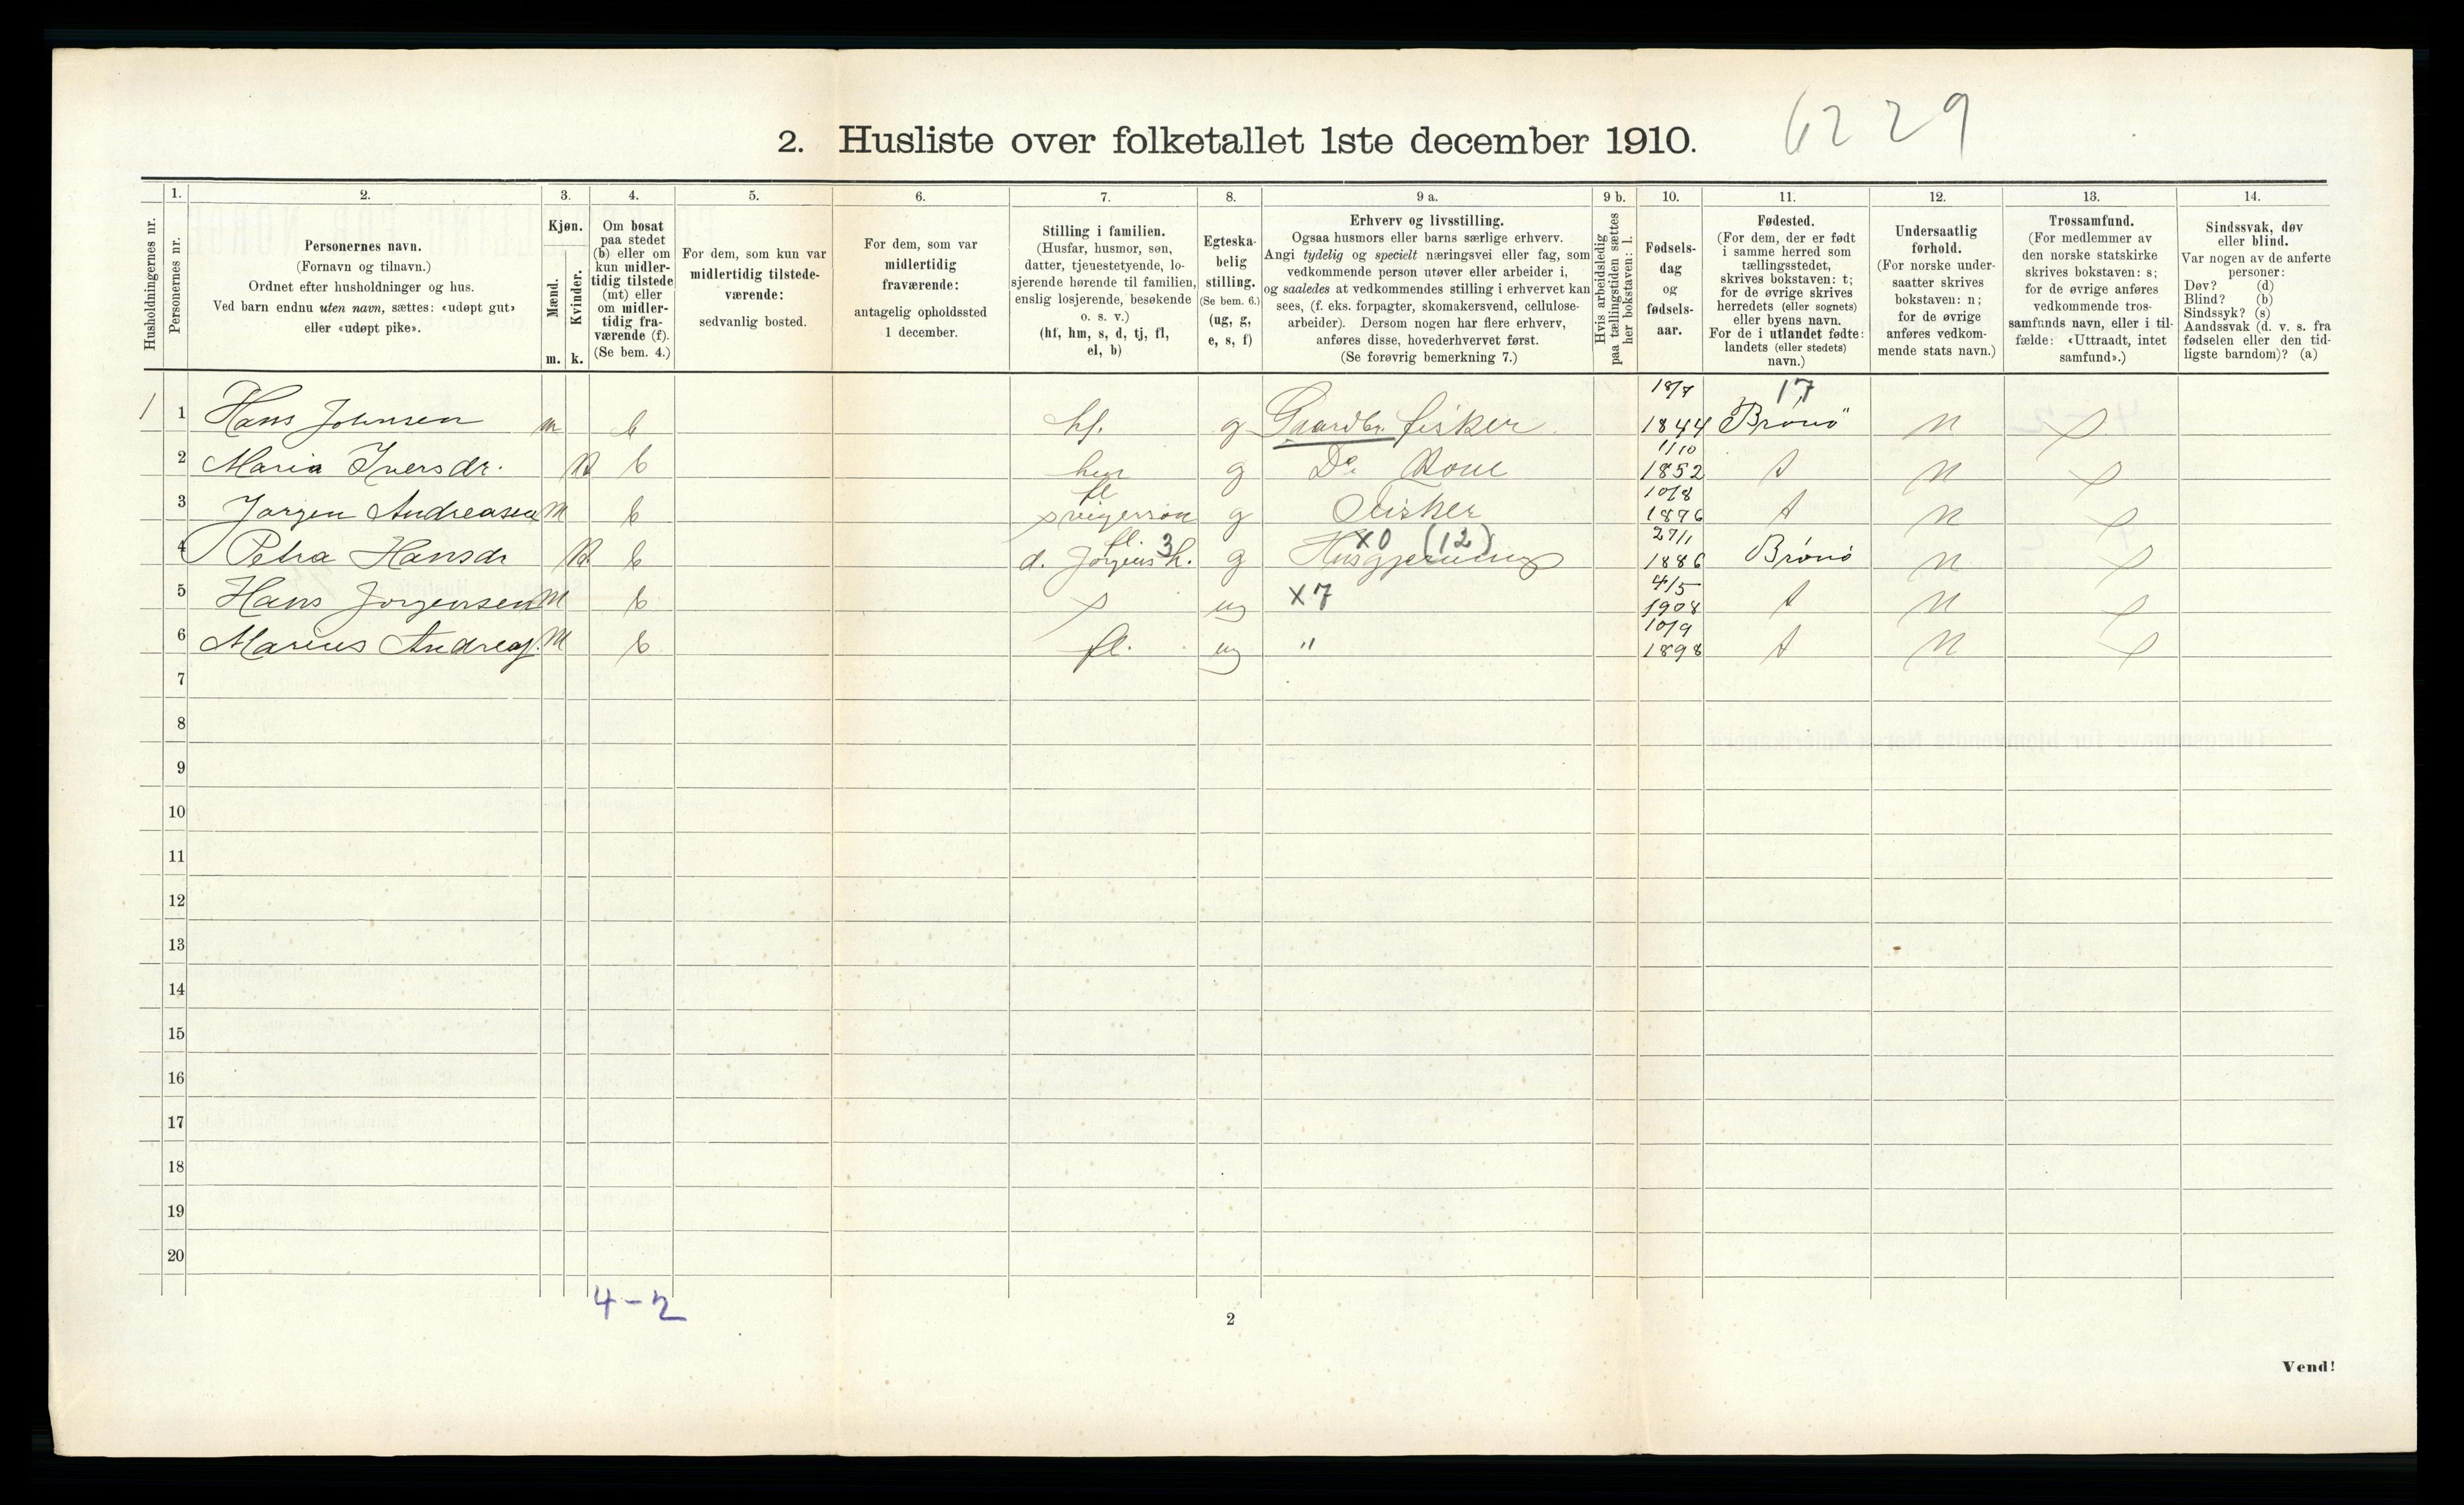 6229
2. Husliste over folketallet 1ste december 1910.
1. 2. 3. 4. 5. 6. 7. 8. 9 a. 9 b. 10. 11. 12. 13. 14.
Husholdningernes nr.
Personernes nr.
Personernes navn.
(Fornavn og tilnavn.)
Ordnet efter husholdninger og hus.
Ved barn endnu uten navn, sættes: «udøpt gut»
eller «udøpt pike».
Kjøn.
Mænd.
Kvinder.
m. k.
Om bosat
paa stedet
(b) eller om
kun midler-
tidig tilstede
(mt) eller
om midler-
tidig fra-
værende (f).
(Se bem. 4.)
For dem, som kun var
midlertidig tilstede-
værende:
sedvanlig bosted.
For dem, som var
midlertidig
fraværende:
antagelig opholdssted
1 december.
Stilling i familien.
(Husfar, husmor, søn,
datter, tjenestetyende, lo-
sjerende hørende til familien,
enslig losjerende, besøkende
o. s. v.)
(hf, hm, s, d, tj, fl,
el, b)
Egteska-
belig
stilling.
(Se bem. 6.)
(ug, g,
e, s, f)
Erhverv og livsstilling.
Ogsaa husmors eller barns særlige erhverv.
Angi tydelig og specielt næringsvei eller fag, som
vedkommende person utøver eller arbeider i,
og saaledes at vedkommendes stilling i erhvervet kan
sees, (f. eks. forpagter, skomakersvend, cellulose-
arbeider). Dersom nogen har flere erhverv,
anføres disse, hovederhvervet først.
(Se forøvrig bemerkning 7.)
Hvis arbeidsledig
paa tællingstiden sættes
her bokstaven: l.
Fødsels-
dag
og
fødsels-
aar.
Fødested.
(For dem, der er født
i samme herred som
tællingsstedet,
skrives bokstaven: t;
for de øvrige skrives
herredets (eller sognets)
eller byens navn.
For de i utlandet fødte:
landets (eller stedets)
navn.)
Undersaatlig
forhold.
(For norske under-
saatter skrives
bokstaven: n;
for de øvrige
anføres vedkom-
mende stats navn.)
Trossamfund.
(For medlemmer av
den norske statskirke
skrives bokstaven: s;
for de øvrige anføres
vedkommende tros-
samfunds navn, eller i til-
fælde: «Uttraadt, intet
samfund».)
Sindssvak, døv
eller blind.
Var nogen av de anførte
personer:
Døv? (d)
Blind? (b)
Sindssyk? (s)
Aandssvak (d. v. s. fra
fødselen eller den tid-
ligste barndom)? (a)
18/7 17
1 1 Hans Johnsen m b hf. g Gaardbr. fisker 1844 Brønø n s
1/10
2 Maria Iversdr. k b hm g Do Kone 1852 t n s
fl 10/8
3 Jørgen Andreasen m b svigersøn g Fisker 1876 t n s
fl. 3 x0 (12) 27/1
4 Petra Hansdr k b d. Jørgens h. g Husgjerning 1886 Brønø n s
4/5
5 Hans Jørgensen m b s ug x7 1908 t n s
10/9
6 Marius Andreas. m b fl. ug " 1898 t n s
7
8
9
10
11
12
13
14
15
16
17
18
19
20
4-2
2
Vend!